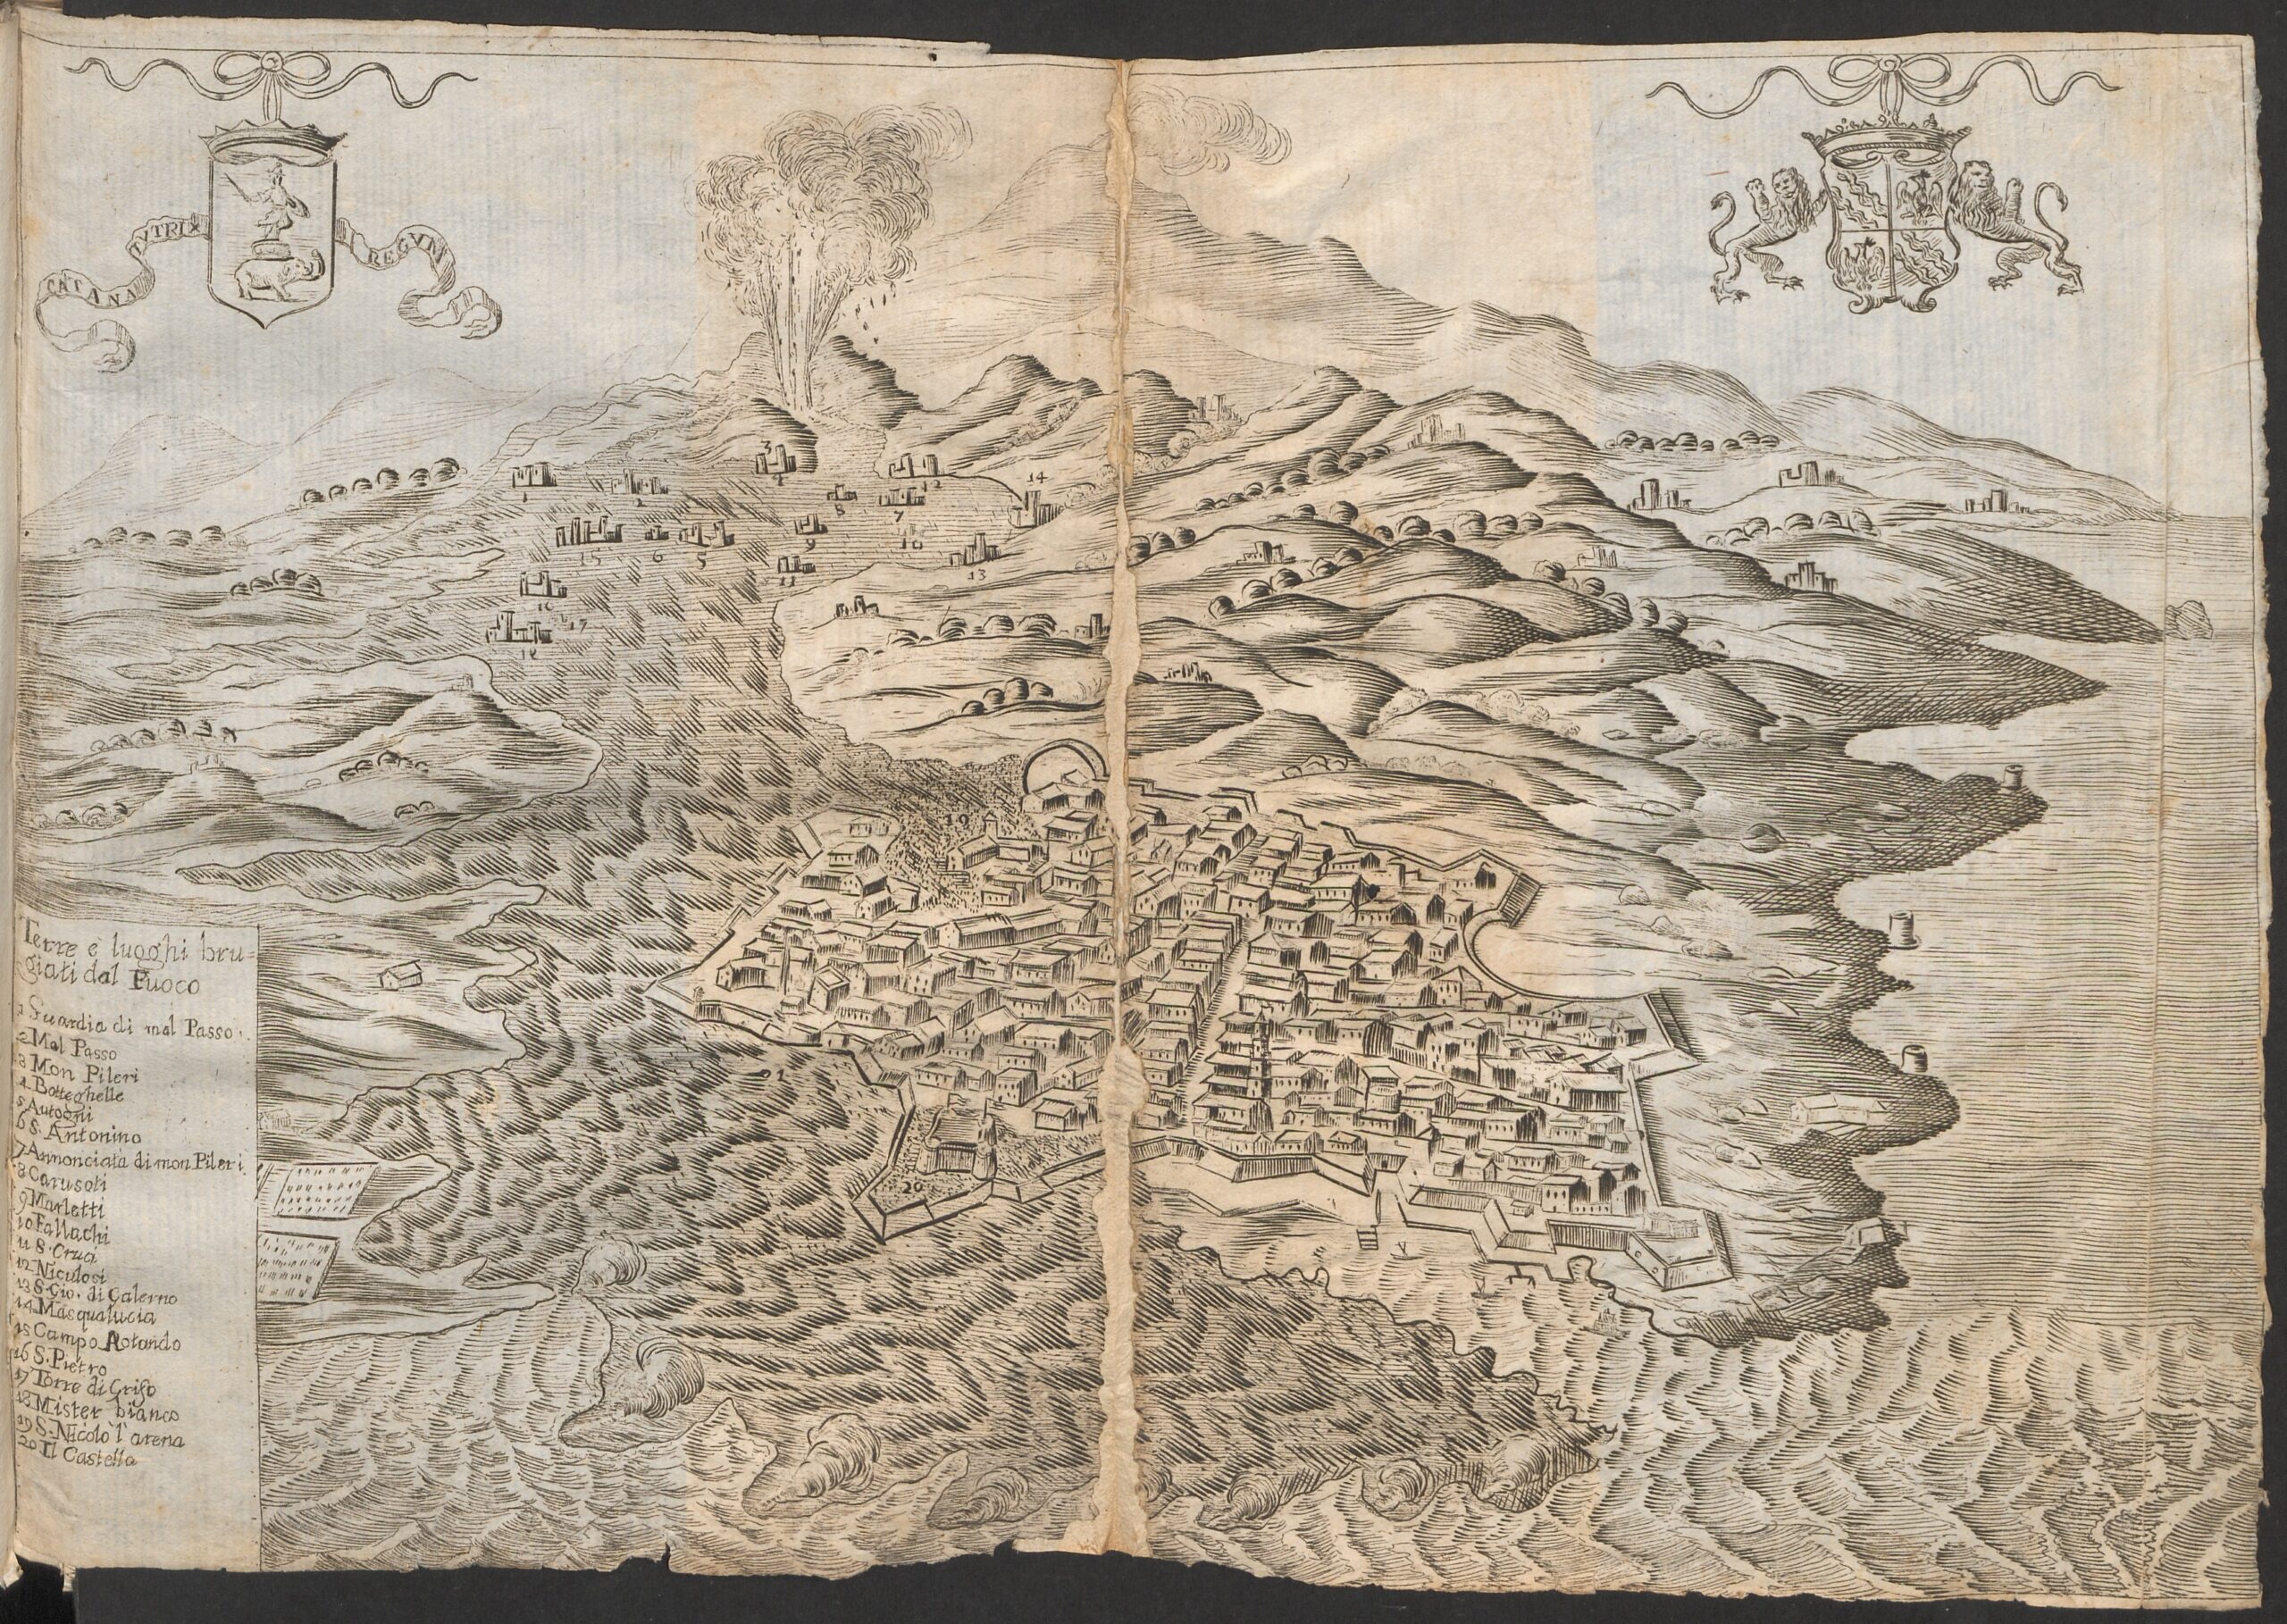 CATANA TVTRIX REGVM
Terre e luoghi bru=
giati dal Fuoco
1 Guardia di mal Passo.
2 Mal Passo
3 Mon Pileri
4 Botteghelle
5 Autogni
6 S. Antonino
7 Annonciata di mon Pileri
8 Carusoti
9 Marletti
10 Fallachi
11 S. Cruci
12 Niculosi
13 S. Gio. di Galerno
14 Masqualucia
15 Campo Rotando
16 S. Pietro
17 Torre di Grifo
18 Mister bianco
19 S. Nicolò l'arena
20 Il Castello
3
4
1
2
12
14
8
7
15
6
5
9
10
11
13
16
17
18
19
21
20